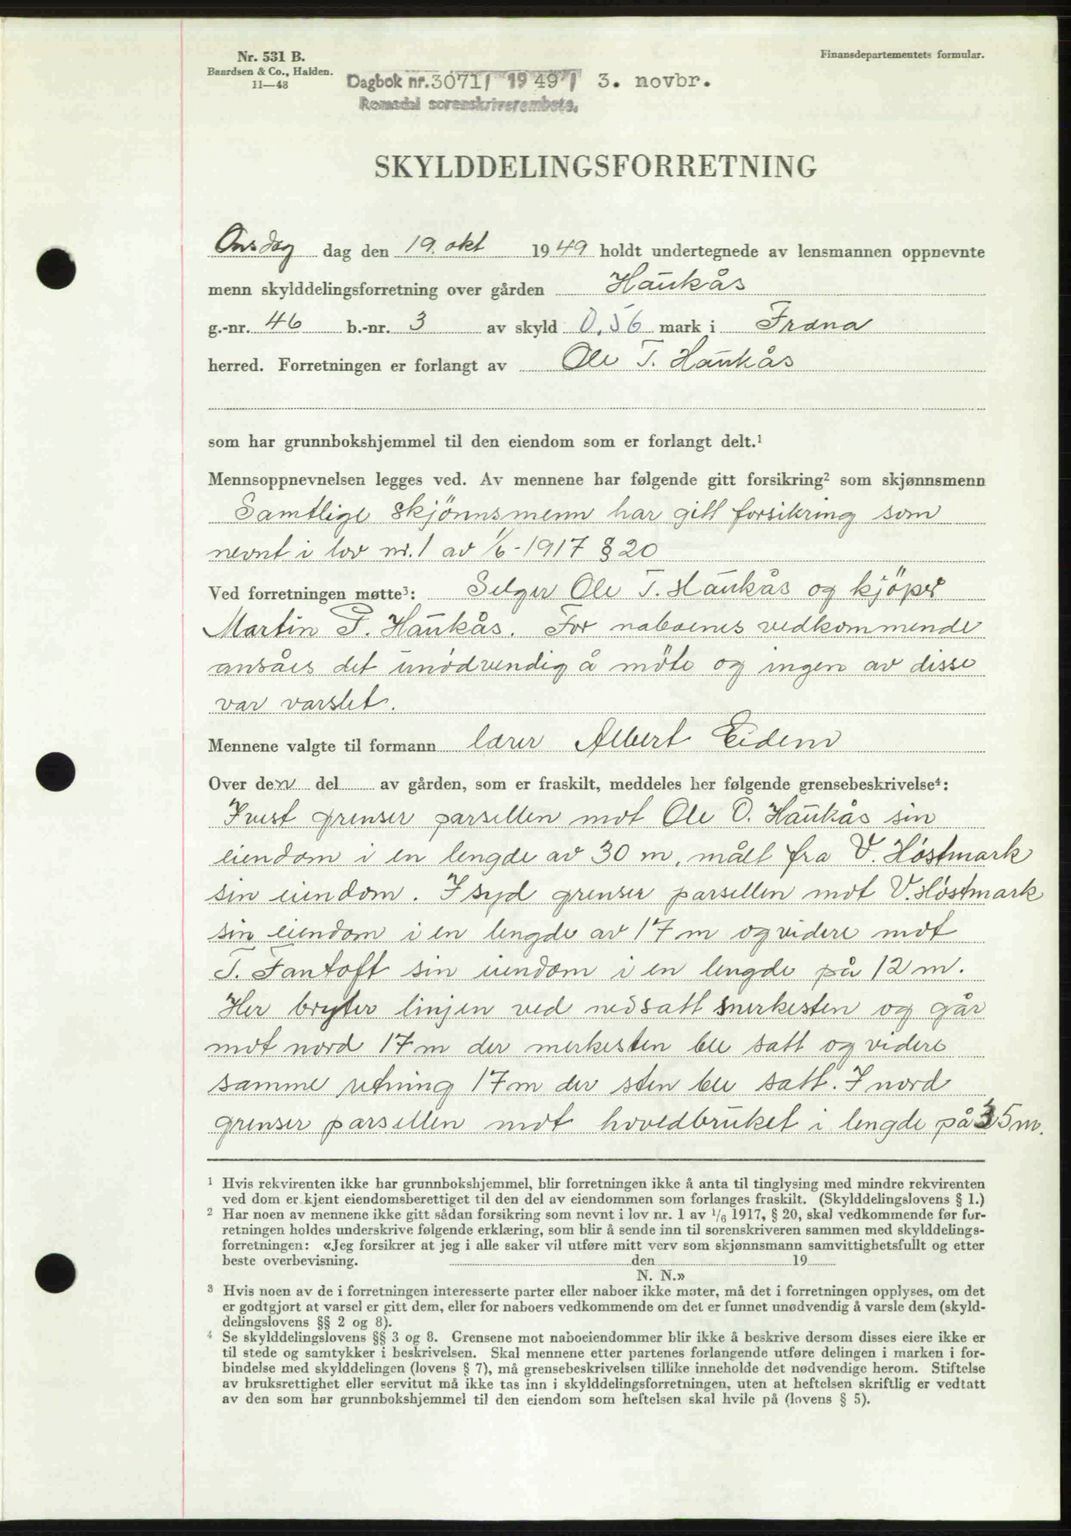 Nr. 531 B.
Baardsen & Co., Halden.
11—48
Finansdepartementets formular.
Dagbok nr. 3071 / 1949 / 3. novbr.
Romsdal sorenskriverembete.
SKYLDDELINGSFORRETNING
Onsdag dag den 19. okt 1949 holdt undertegnede av lensmannen oppnevnte
menn skylddelingsforretning over gården Haukås
g.-nr. 46 b.-nr. 3 av skyld 0,56 mark i Fræna
herred. Forretningen er forlangt av Ole T. Haukås
som har grunnbokshjemmel til den eiendom som er forlangt delt.¹
Mennsoppnevnelsen legges ved. Av mennene har følgende gitt forsikring² som skjønnsmenn
Samtlige skjönnsmenn har gitt forsikring som
nevnt i lov nr. 1 av 1/6-1917 § 20
Ved forretningen møtte³: Selger Ole T. Haukås og kjöper
Martin P. Haukås. For naboenes vedkommende
ansåes det unödvendig å möte og ingen av disse
var varslet.
Mennene valgte til formann lærer Albert Eidem
Over den del av gården, som er fraskilt, meddeles her følgende grensebeskrivelse⁴:
I vest grenser parsellen mot Ole O. Haukås sin
eiendom i en lengde av 30 m, målt fra V. Höstmark
sin eiendom. I syd grenser parsellen mot V. Höstmark
sin eiendom i en lengde av 17 m og videre mot
T. Fantoft sin eiendom i en lengde på 12 m.
Her bryter linjen ved nedsatt merkesten og går
mot nord 17 m der merkesten ble satt og videre
samme retning 17 m der sten ble satt. I nord
grenser parsellen mot hovedbruket i lengde på 35 m.
¹ Hvis rekvirenten ikke har grunnbokshjemmel, blir forretningen ikke å anta til tinglysing med mindre rekvirenten
ved dom er kjent eiendomsberettiget til den del av eiendommen som forlanges fraskilt. (Skylddelingslovens § 1.)
² Har noen av mennene ikke gitt sådan forsikring som nevnt i lov nr. 1 av 1/6 1917, § 20, skal vedkommende før for-
retningen holdes underskrive følgende erklæring, som blir å sende inn til sorenskriveren sammen med skylddelings-
forretningen: «Jeg forsikrer at jeg i alle saker vil utføre mitt verv som skjønnsmann samvittighetsfullt og etter
beste overbevisning. den 19
N. N.»
³ Hvis noen av de i forretningen interesserte parter eller naboer ikke møter, må det i forretningen opplyses, om det
er godtgjort at varsel er gitt dem, eller for naboers vedkommende om det er funnet unødvendig å varsle dem (skyld-
delingslovens §§ 2 og 8).
⁴ Se skylddelingslovens §§ 3 og 8. Grensene mot naboeiendommer blir ikke å beskrive dersom disses eiere ikke er
til stede og samtykker i beskrivelsen. Skal mennene etter partenes forlangende utføre delingen i marken i for-
bindelse med skylddelingen (lovens § 7), må grensebeskrivelsen tillike inneholde det nødvendige herom. Stiftelse
av bruksrettighet eller servitut må ikke tas inn i skylddelingsforretningen, uten at heftelsen skriftlig er vedtatt
av den som har grunnbokshjemmel til den eiendom som heftelsen skal hvile på (lovens § 5).